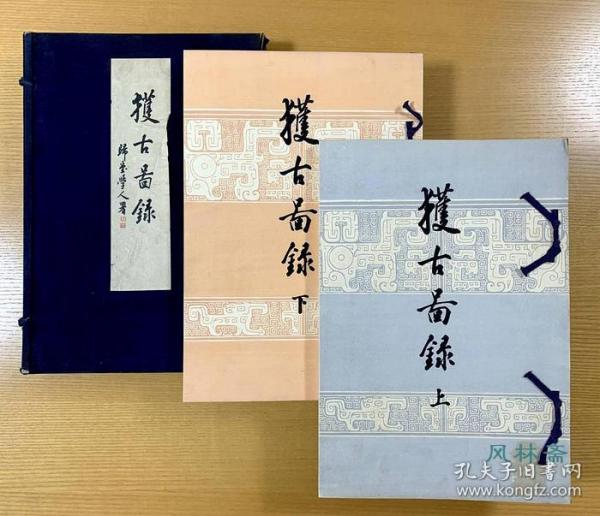 獲古啚録
歸堂學人署
獲古啚録
下
獲古啚録
上
风林斋
孔夫子旧书网
www.kongfz.com